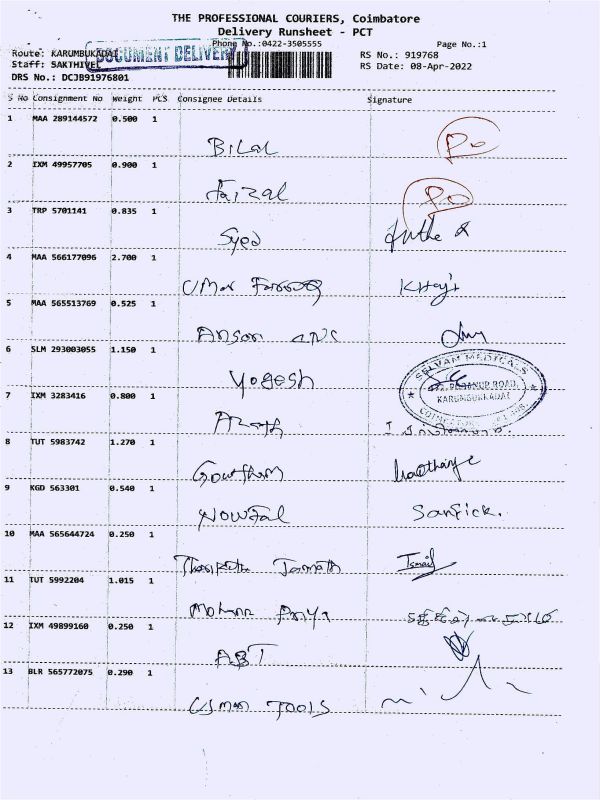 THE PROFESSIONAL COURIERS, Coimbatore
Delivery Runsheet - PCT
Phone No.:0422-3505555 Page No.:1
Route: KARUMBUKADAI RS No.: 919768
DOCUMENT DELIVERY
Staff: SAKTHIVEL RS Date: 08-Apr-2022
DRS No.: DCJB91976801
S No Consignment No Weight PCS Consignee Details Signature
1 MAA 289144572 0.500 1
Bilal
2 IXM 49957705 0.900 1
Faizal
3 TRP 5701141 0.835 1
Syed
4 MAA 566177096 2.700 1
Umar Farooq
5 MAA 565513769 0.525 1
Ansari
6 SLM 293003055 1.150 1
Yogesh
SELVAM MEDICALS
ROAD,
KARUMBUKKADAI
7 IXM 3283416 0.800 1
8 TUT 5983742 1.270 1
Gowtham
9 KGD 563301 0.540 1
Nowfal Sanfick.
10 MAA 565644724 0.250 1
Jamath Ismail
11 TUT 5992204 1.015 1
Mohana Priya
12 IXM 49899160 0.250 1
ABT
13 BLR 565772075 0.290 1
Usman TOOLS